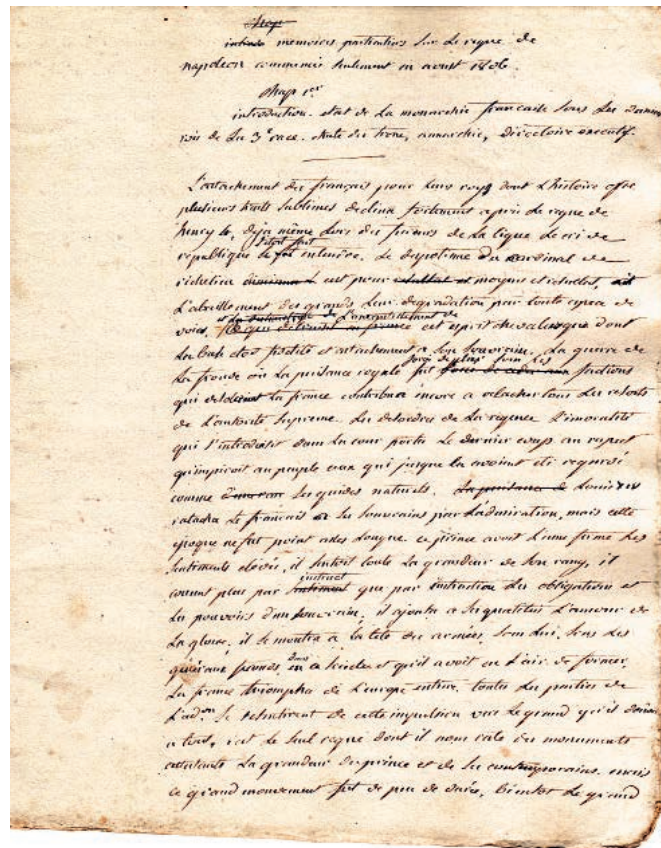 chap
intro memoires particuliers sur le regne de
napoleon commencée seulement en aoust 1806.
chap 1er
introduction. etat de la monarchie francaise sous les derniers
rois de la 3e race. chute du trone, annarchie, directoire executif.
L'attachement des français pour leurs roys dont l'histoire offre
plusieurs traits sublimes declina fortement après le regne de
henry 4, deja même lors des fureurs de la ligue le cri de
république s'etoit fait fut entendre. le despotisme du cardinal de
richelieu eut pour resultat et moyens
L'abaissement des grands leur degradation par toute espece de
voies, cet esprit chevaleresque dont
la base etoit fidelité et attachement a son souverain. La guerre de
la fronde où la puissance royale fut forcée de plier sous les forcée de ceder aux factions
qui desoloient la france contribua encore a relacher tous les ressorts
de l'autorité supreme. Les desordres de la regence l'immoralité
qui s'introduisit dans la cour porta le dernier coup au respect
qu'inspiroit au peuple ceux qui jusque la avoient eté regardé
comme ses guides naturels. la puissance de Louis XIV
ratacha le français a ses souverains par l'admiration, mais cette
epoque ne fut point assez longue. ce prince avoit l'ame ferme les
sentiments elevés, il sentoit toute la grandeur de son rang, il
connut plus par instinct sentiment que par instruction les obligations et
les pouvoirs d'un souverain, il ajouta a ses qualités l'amour de
la gloire, il se montra a la tete des armées, sous lui, sous les
généraux formés dans en ce siecle et qu'il avoit eu l'air de former
la france triompha de l'europe entiere. toutes les parties de
l'adon se sentirent de cette impulsion vers le grand qu'il donna
a tout, c'est le seul regne dont il nous reste des monuments
attestants la grandeur du prince et de ses contemporains. mais
ce grand mouvement fut de peu de durée, bientot le grand